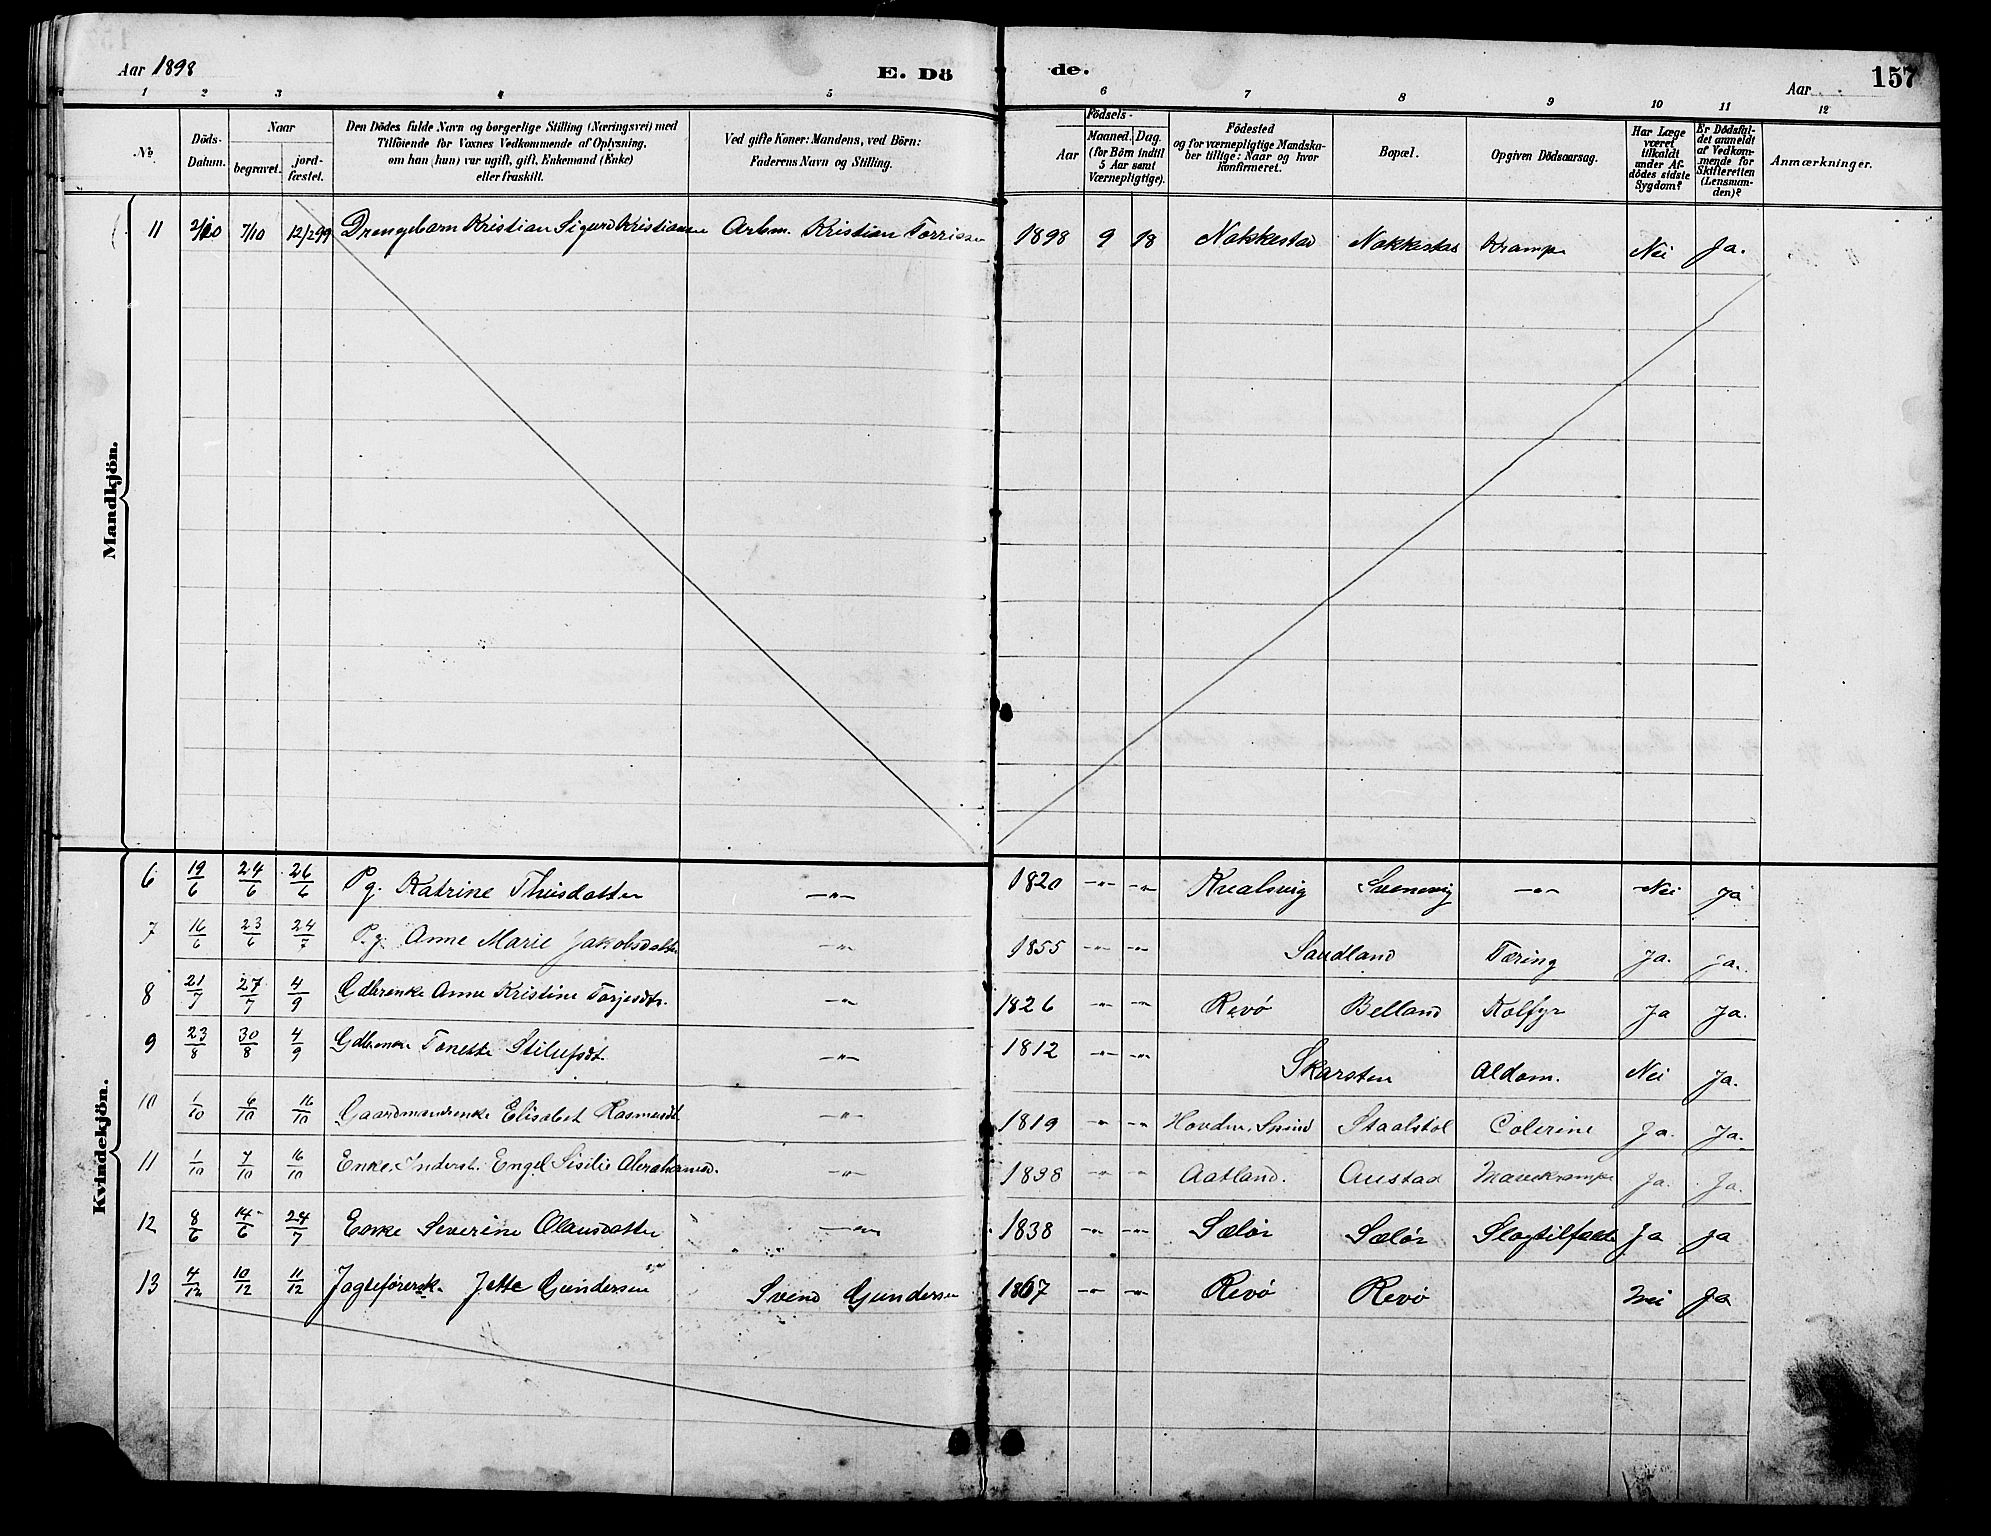 Aar 1898 E. Dö de. Aar 157
1 2 3 4 5 6 7 8 9 10 11 12
No. Döds-Datum. Naar begravet. jordfæstet. Den Dödes fulde Navn og borgerlige Stilling (Næringsvei) med Tilföiende for Voxnes Vedkommende af Oplysning, om han (hun) var ugift, gift, Enkemand (Enke) eller fraskilt. Ved gifte Koner: Mandens, ved Börn: Faderens Navn og Stilling. Födsels- Aar Maaned. Dag. (for Börn indtil 5 Aar samt Værnepligtige). Födested og for værnepligtige Mandskaber tillige: Naar og hvor konfirmeret. Bopæl. Opgiven Dödsaarsag. Har Læge været tilkaldt under Afdödes sidste Sygdom? Er Dödsfaldet anmeldt af Vedkommende for Skifteretten (Lensmanden)? Anmærkninger.
Mandkjön.
11 2/10 7/10 12/2 99 Drengebarn Kristian Sigurd Kristiansen Arbm. Kristian Torrissen 1898 9 18 Nakkestad Nakkestad Krampe Nei Ja.
Kvindekjön.
6 19/6 24/6 26/6 Pg. Katrine Thisdatter —"— 1820 —"— —"— Kvalsvig Svenevig —"— Nei Ja
7 16/6 23/6 24/7 P.g. Anne Marie Jakobsdatter —"— 1855 —"— —"— Sandland Tæring Ja. Ja.
8 21/7 27/7 4/9 Gdbrenke Anne Kristine Torjesdtr. —"— 1826 —"— —"— Revø Belland Kolfyr Ja Ja.
9 23/8 30/8 4/9 Gdbrenke Tonette —"— 1812 —"— —"— Skarsten Aldom. Nei Ja.
10 1/10 6/10 16/10 Gaardmandsenke Elisabet Rasmusdt. —"— 1819 —"— —"— Hovden, Spind Staalstøl Colerine Ja. Ja.
11 1/10 7/10 16/10 Enke, Inderst. Engel Sisilie Abrahamsd. —"— 1838 —"— —"— Aatland. Austad Mavekrampe Ja. Ja.
12 8/6 14/6 24/7 Enke Severine Olausdatter —"— 1838 —"— —"— Sælør Sælør Slagtilfælde Ja Ja
13 4/12 10/12 11/12 Jagteførersk. Jette Gundersen Svend Gundersen 1867 —"— —"— Revø Revø Nei Ja